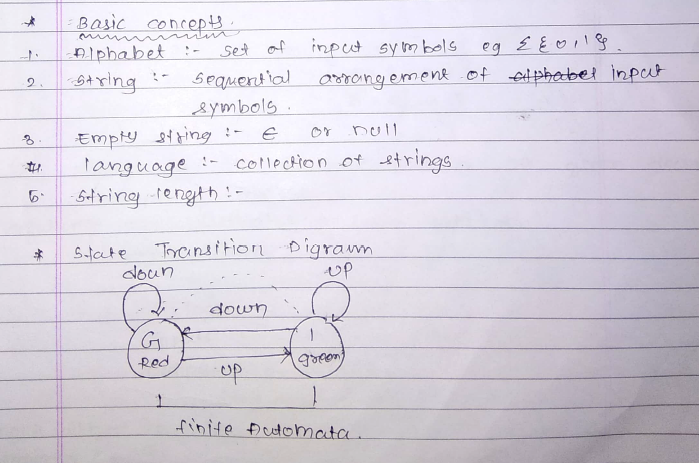 * Basic concepts.
1. Alphabet :- set of input symbols eg Σ {0,1}.
2. string :- sequential arrangement of alphabet input
symbols.
3. Empty string :- ϵ or null
4. language :- collection of strings.
5. String length :-
* State Transition Digram
down UP
down
G 1
Red green
UP
finite Automata.